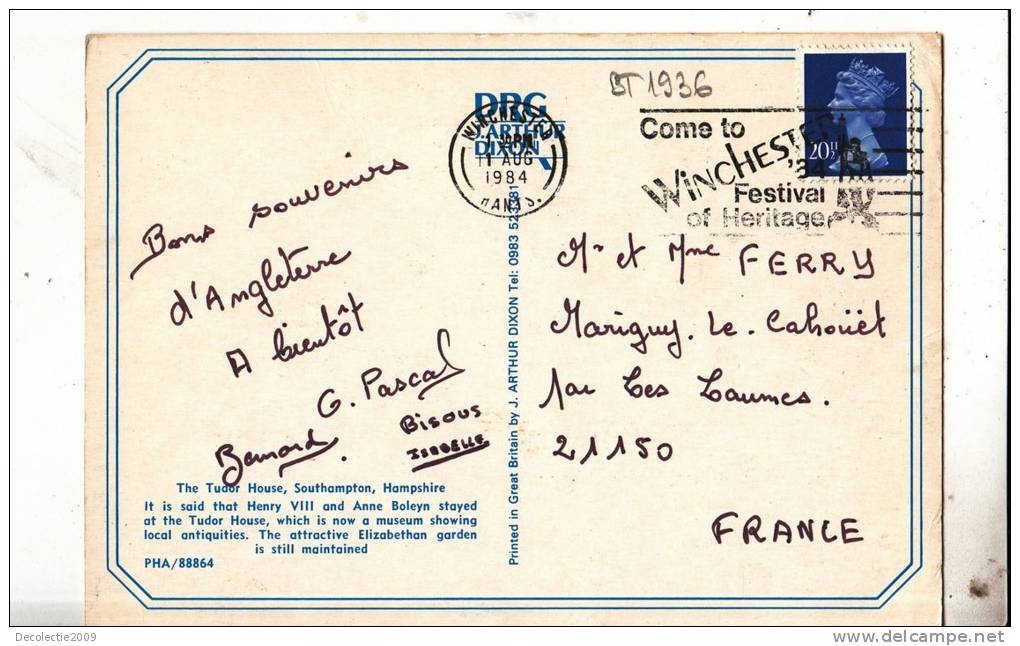 BT 1936
DRG
J. ARTHUR
DIXON
WINCHESTER
30 PM
1 AUG
1984
HANTS.
Come to
WINCHESTER
'84
Festival
of Heritage
20½P
Bons souvenirs
d'Angleterre
A bientôt
G. Pascal
Bernard
BISOUS
ISABELLE
The Tudor House, Southampton, Hampshire
It is said that Henry VIII and Anne Boleyn stayed
at the Tudor House, which is now a museum showing
local antiquities. The attractive Elizabethan garden
is still maintained
PHA/88864
Printed in Great Britain by J. ARTHUR DIXON Tel: 0983 523381
Mr et Mme FERRY
Marigny. Le. Cahouët
Par Les Laumes.
21150
FRANCE
Decolectie2009
delcampe.net